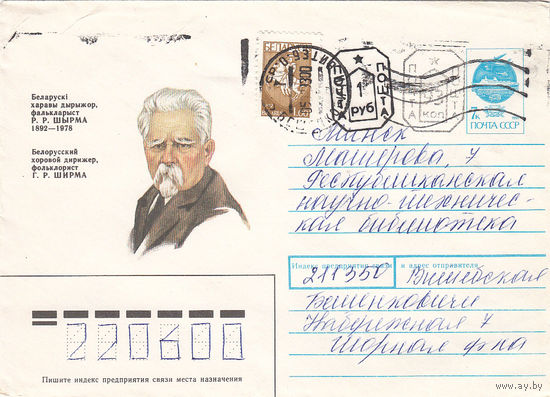 Беларускі
харавы дырыжор,
фалькларыст
Р. Р. ШЫРМА
1892—1978
Белорусский
хоровой дирижер,
фольклорист
Г. Р. ШИРМА
БЕЛАРУСЬ
ПОШТА
1
РУБ
ПОШТА
КОП
7к
ПОЧТА СССР
Минск
Машерова, 7
Республиканская
научно-техничес-
кая библиотека
Индекс предприятия связи и адрес отправителя
211350 Витебская
Бешенковичи
Набережная 7
220600
Пишите индекс предприятия связи места назначения
www.ay.by